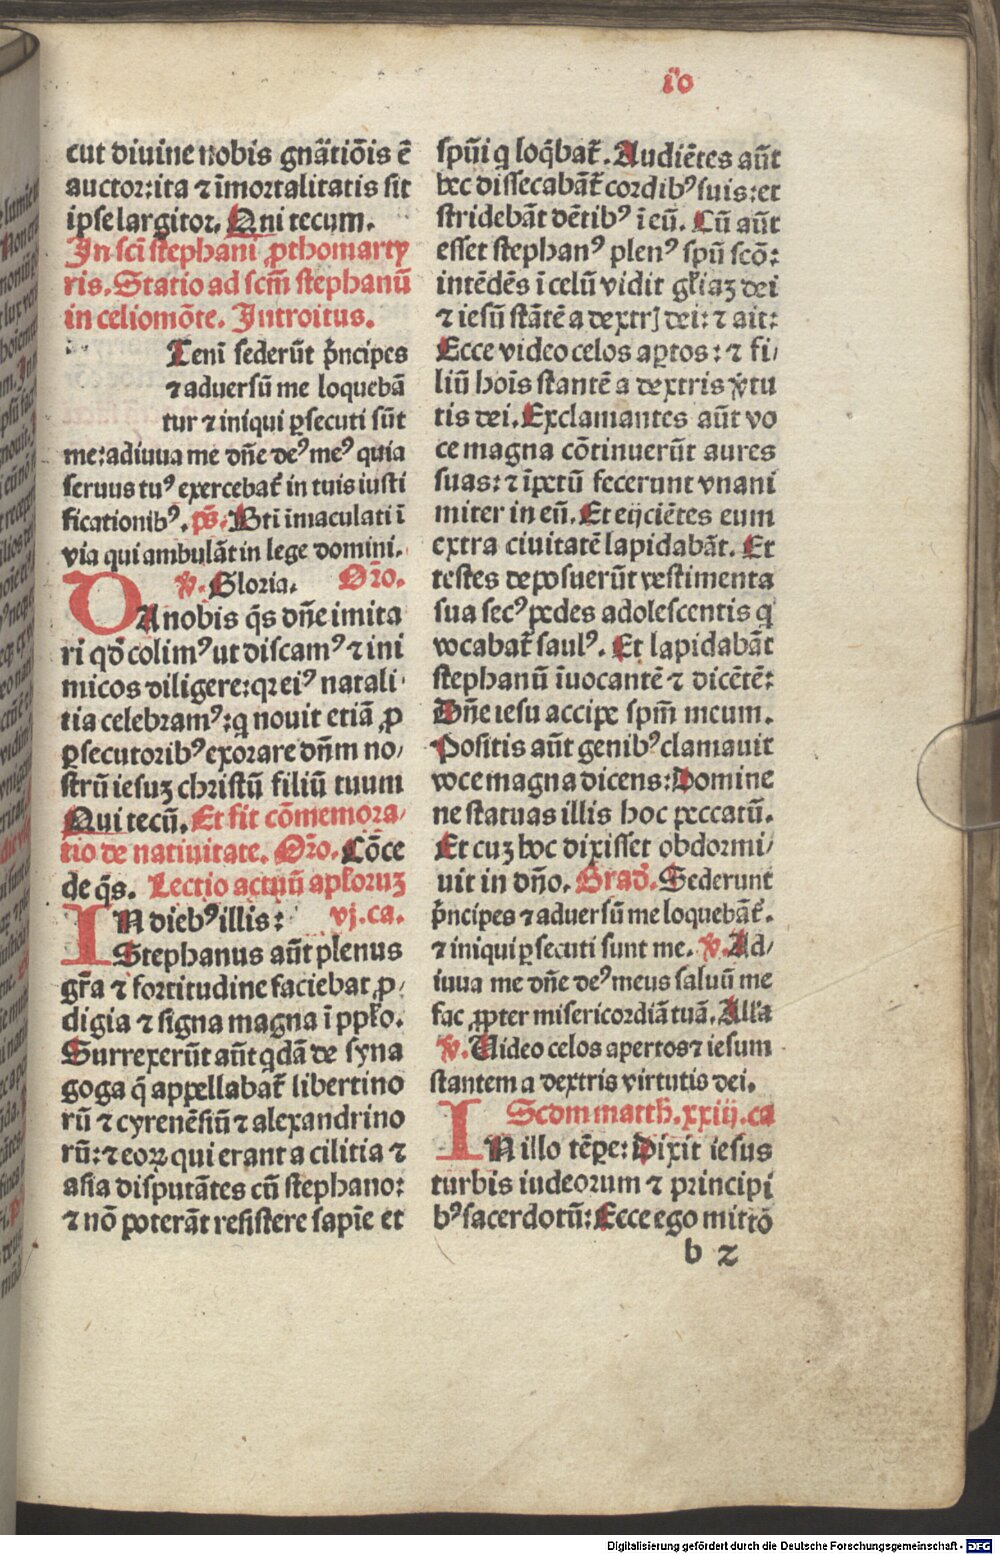 io
cut diuine nobis gnãtiõis ẽ
auctor: ita ⁊ ĩmortalitatis sit
ipse largitor. Qui tecum.
In scĩ stephani ꝓthomarty
ris. Statio ad scm̃ stephanũ
in celiomõte. Introitus.
Teni sederũt p̃ncipes
⁊ aduersũ me loquebã
tur ⁊ iniqui ꝑsecuti sũt
me: adiuua me dñe deꝰ meꝰ quia
seruus tuꝰ exercebat̃ in tuis iusti
ficationibꝰ. ps̃. Bti ĩmaculati ĩ
via qui ambulãt in lege domini.
℣. Gloria. Or̃o.
DA nobis q̃s dñe imita
ri qd̃ colimꝰ ut discamꝰ ⁊ ini
micos diligere: qꝛ eiꝰ natali
tia celebramꝰ: q̃ nouit etiã ꝓ
ꝑsecutoribꝰ exorare dñm no/
strũ iesuꝫ christũ filiũ tuum
Qui tecũ. Et fit cõmemora/
tio de natiuitate. Or̃o. Cõce
de q̃s. Lectio actuũ aplo̵ruꝫ
IN diebꝰ illis: vj. ca.
Stephanus aũt plenus
gr̃a ⁊ fortitudine faciebat ꝓ/
digia ⁊ signa magna ĩ pplo̵.
Surrexerũt aũt qdã de syna
goga q̃ appellabat̃ libertino
rũ ⁊ cyrenẽsiũ ⁊ alexandrino
rũ: ⁊ eoꝝ qui erant a cilitia ⁊
asia disputãtes cũ stephano:
⁊ nõ poterãt resistere sapĩe et
spũi q̃ loq̃bat̃. Audiẽtes aũt
hec dissecabãt̃ cordibꝰ suis: et
stridebãt dẽtibꝰ ĩ eũ. Cũ aũt
esset stephanꝰ plenꝰ spũ scõ:
intẽdẽs ĩ celũ vidit gl̃iaꝫ dei
⁊ iesũ stãtẽ a dextrꝭ dei: ⁊ ait:
Ecce video celos aꝑtos: ⁊ fi/
liũ hoĩs stantẽ a dextris v̓tu
tis dei. Exclamantes aũt vo
ce magna cõtinuerũt aures
suas: ⁊ ĩpetũ fecerunt vnani
miter in eũ. Et eijciẽtes eum
extra ciuitatẽ lapidabãt. Et
testes deposuerũt vestimenta
sua secꝰ pedes adolescentis q̃
vocabat̃ saulꝰ. Et lapidabãt
stephanũ ĩuocantẽ ⁊ dicẽtẽ:
Dñe iesu accipe spm̃ meum.
Positis aũt genibꝰ clamauit
voce magna dicens: Domine
ne statuas illis hoc peccatũ.
Et cuꝫ hoc dixisset obdormi/
uit in dño. Grad̃. Sederunt
p̃ncipes ⁊ aduersũ me loquebãt̃.
⁊ iniqui ꝑsecuti sunt me. ℣. Ad/
iuua me dñe deꝰ meus saluũ me
fac ꝓpter misericordiã tuã. All'a
℣. Video celos apertos ⁊ iesum
stantem a dextris virtutis dei.
Scdm matth. xxiij. ca
IN illo tẽꝑe: Dixit iesus
turbis iudeorum ⁊ principi
bꝰ sacerdotũ: Ecce ego mittõ
b 2
Digitalisierung gefördert durch die Deutsche Forschungsgemeinschaft - DFG